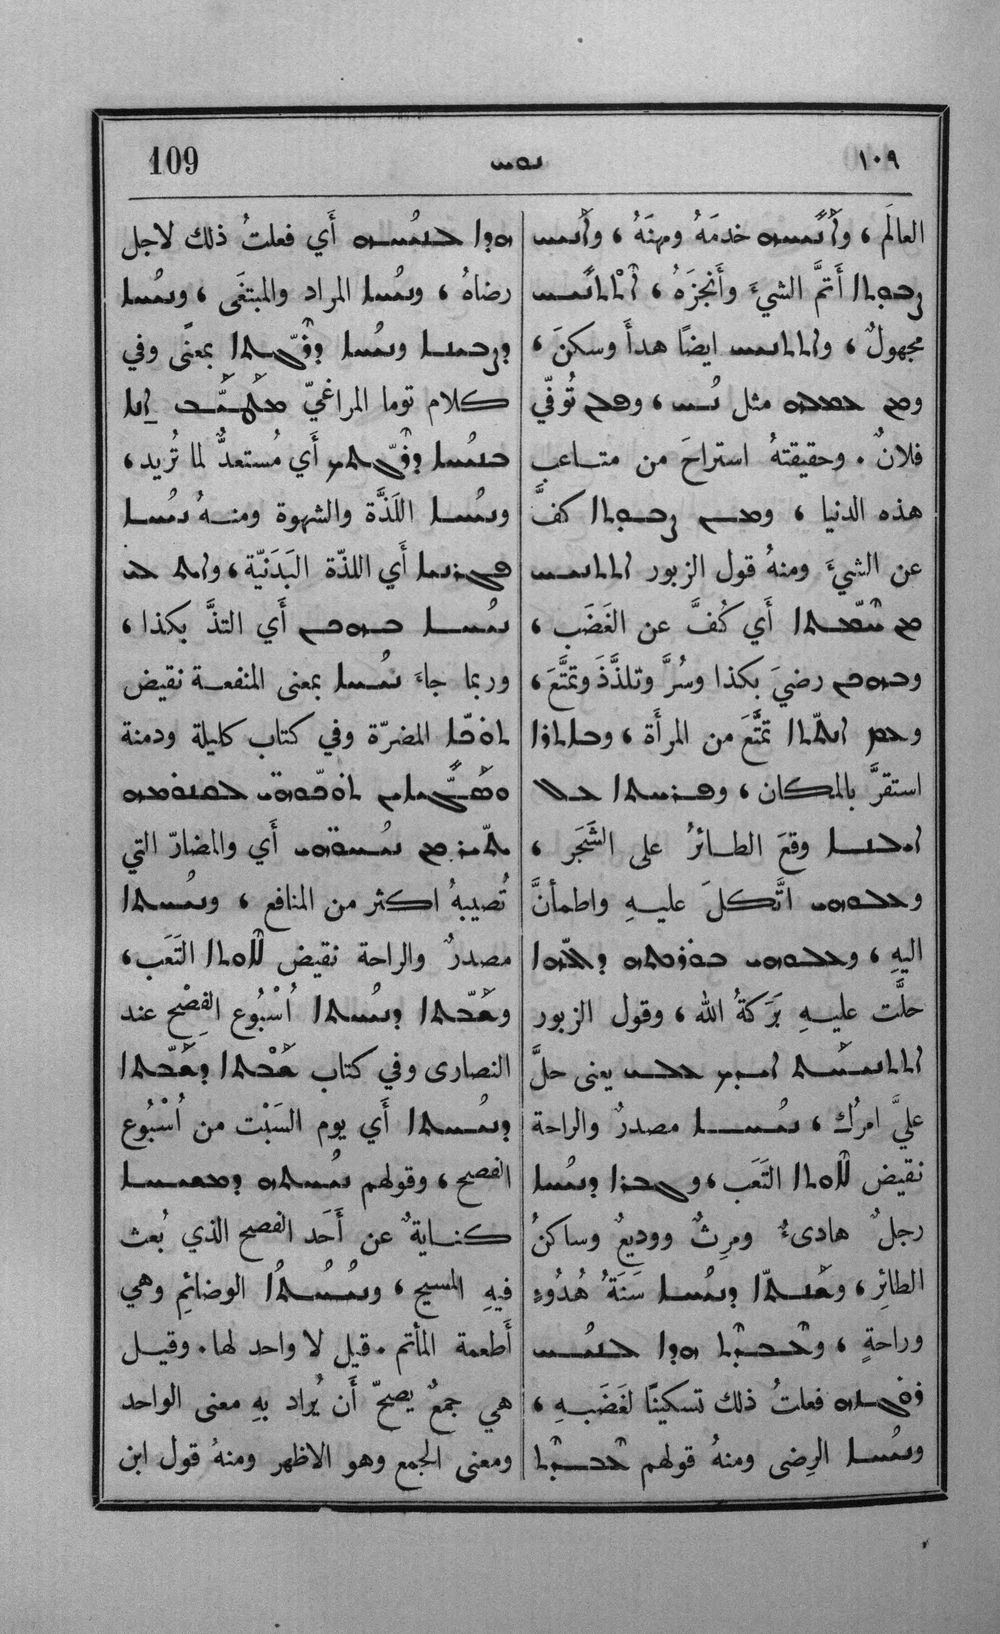 ١٠٩ ܢܘܚ 109
العالَم ، وܐܢܝܚܗ خدمَهُ ومهنَهُ ، وܐܢܝܚ
ܨܒܘܬܐ أَتمَّ الشيءَ وأَنجزَهُ ، ܐܬܬܢܝܚ
مجهولٌ ، وܐܬܬܢܝܚ ايضًا هدأَ وسكنَ ،
مثل ܢܚ ، تُوفّي
فلانٌ . وحقيقتهُ استراحَ من متاعب
هذه الدنيا ، وܡܢ ܨܒܘܬܐ كفَّ
عن الشيءَ ومنهُ قول الزبور ܐܬܬܢܝܚ
ܡܢ ܚܡܬܐ أَي كُفَّ عن الغَضَب ،
وܒܗܘܟܢ رضيَ بكذا وسُرَّ وتلذَّذَ وتمتَّعَ ،
وܥܡ ܐܢܬܬܐ تمتَّعَ من المرأَة ، وܒܐܬܪܐ
استقرَّ بالمكان ، وܦܪܚܬܐ ܥܠ
ܐܝܠܢܐ وقعَ الطائرُ على الشَجَر ،
وܥܠܘܗܝ اتَّكلَ عليهِ واطمأنَّ
اليهِ ، وܥܠܘܗܝ ܒܘܪܟܬܗ ܕܐܠܗܐ
حلَّت عليهِ بَرَكةُ الله ، وقول الزبور
ܐܬܬܢܝܚܬ ܐܝܕܟ ܥܠܝ يعنى حلَّ
عليَّ امرُك ، ܢܝܚܐ مصدرٌ والراحة
نقيض ܠܐܘܬܐ التَعَب ، وܓܒܪܐ ܕܢܝܚܐ
رجلٌ هادىءٌ ومرِثٌ ووديعٌ وساكنُ
الطائِر ، وܫܢܬܐ ܕܢܝܚܐ سَنَةُ هُدُوءٍ
وراحةٍ ، وܥܒܕܬ ܗܕܐ ܠܢܝܚ
ܪܘܓܙܗ فعلتُ ذلك تسكينًا لغَضَبهِ ،
وܢܝܚܐ الرِضى ومنهُ قولهم ܥܒܕܬ
ܗܕܐ ܠܢܝܚܗ أَي فعلتُ ذلك لاجل
رضاهُ ، وܢܝܚܐ المراد والمبتغَى ، وܢܝܚܐ
ܕܨܒܝܢܐ وܢܝܚܐ ܕܪܓܬܐ بمعنًى وفي
كلام توما المراغيّ ܡܛܝܒ ܐܢܐ
ܠܢܝܚܐ ܕܪܓܬܟ أَي مُستعدٌّ لما تُريد ،
وܢܝܚܐ اللَذَّة والشهوة ومنهُ ܢܝܚܐ
ܦܓܪܢܝܐ أَي اللذّة البَدَنيّة ،
ܢܝܚܐ ܒܗܘܟܢ أَي التذَّ بكذا ،
وربما جاءَ ܢܝܚܐ بمعنى المنفعة نقيض
ܬܘܟܐ المضرّة وفي كتاب كليلة ودمنة
ܘܣܓܝܐܝܢ ܬܘܟܘܗܝ
ܝܬܝܪ ܡܢ ܢܝܚܘܗܝ أَي والمضارّ التي
تُصيبهُ اكثر من المنافع ، وܢܝܚܬܐ
مصدرٌ والراحة نقيض ܠܐܘܬܐ التَعَب ،
وܫܒܬܐ ܕܢܝܚܬܐ أُسْبُوع الفِصْح عند
النصارى وفي كتاب ܫܒܬܐ ܕܫܒܬܐ
ܕܢܝܚܬܐ أَي يوم السَبْت من أُسْبُوع
الفصح ، وقولهم ܢܝܚܬܗ ܕܡܫܝܚܐ
كنايةٌ عن أَحَد الفصح الذي بُعث
فيهِ المسيح ، وܢܝܚܬܐ الوضائِم وهي
أَطعمة المأتم . قيل لا واحد لها . وقيل
هي جمعٌ يصحّ أَن يُراد بهِ معنى الواحد
ومعنى الجمع وهو الاظهر ومنهُ قول ابن